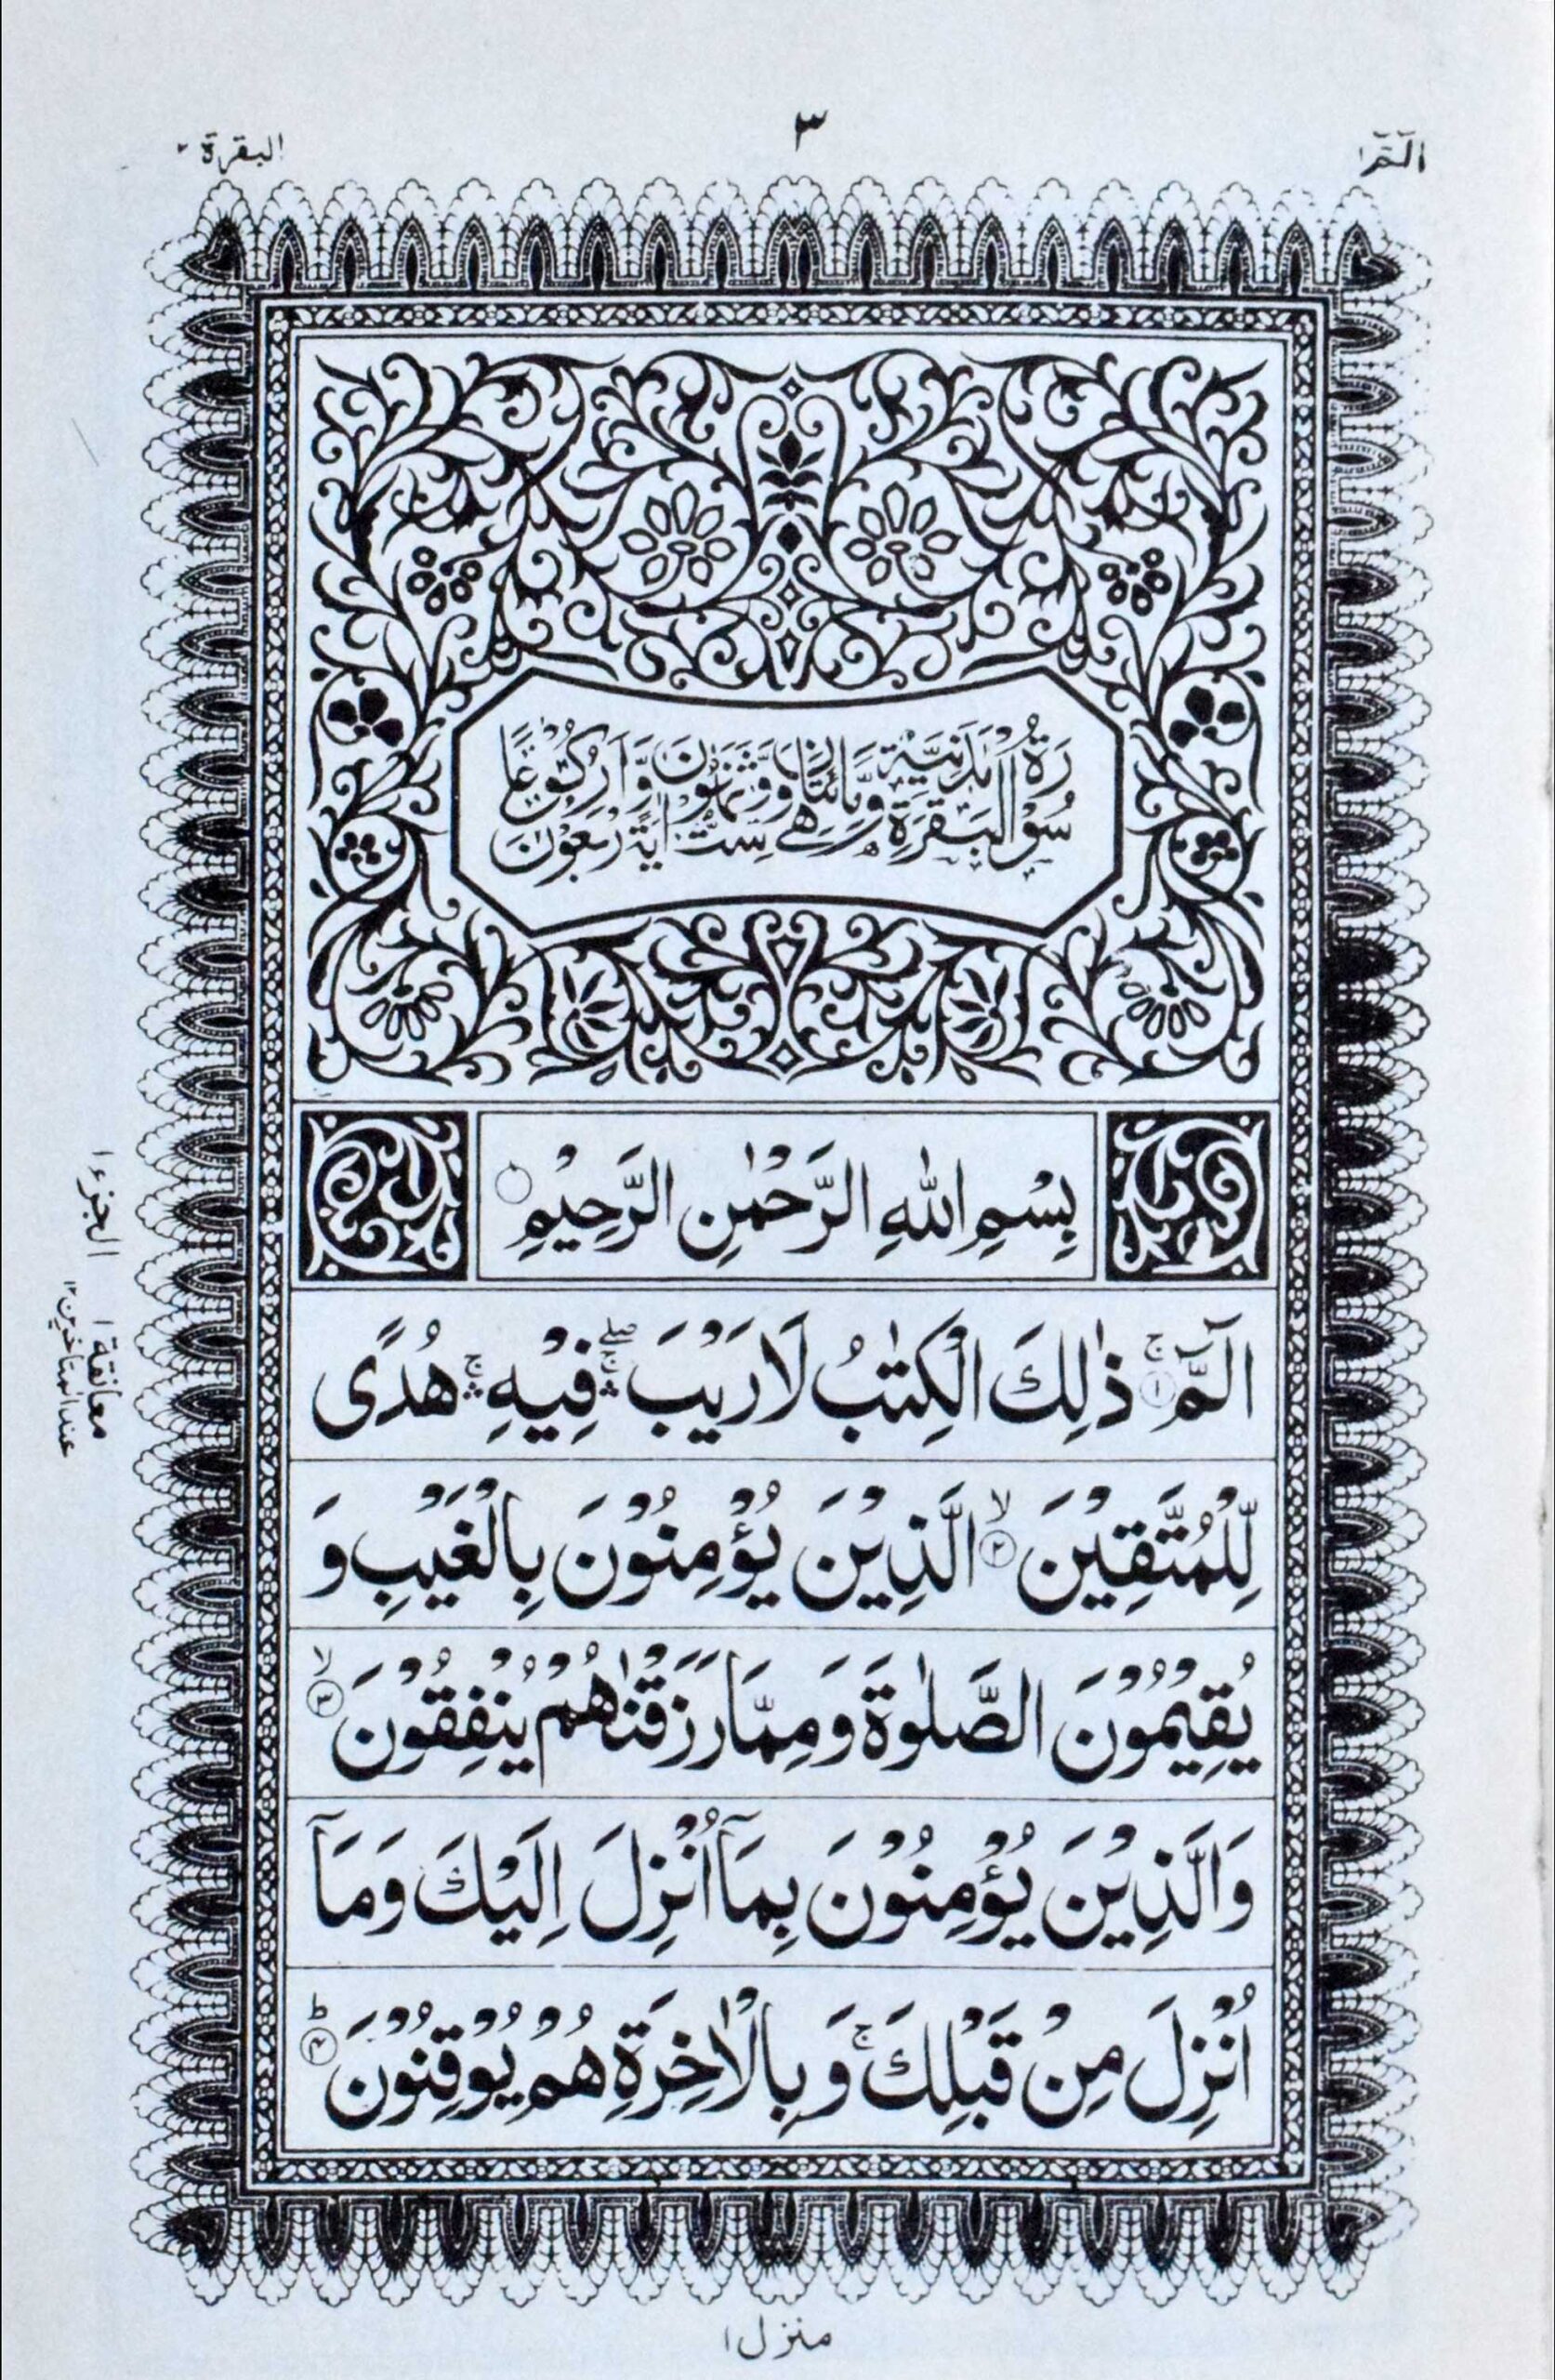 الٓمّٓ ١
٣
البقرة ٢
سُوْرَةُ الْبَقَرَةِ مَدَنِيَّةٌ وَّهِيَ مِائَتَانِ وَسِتٌّ وَّثَمٰنُوْنَ اٰيَةً وَّاَرْبَعُوْنَ رُكُوْعًا
بِسْمِ اللّٰهِ الرَّحْمٰنِ الرَّحِيْمِ
الٓمّٓ ۚ‏﴿۱﴾ ذٰلِكَ الْكِتٰبُ لَا رَيْبَ ۛۖۚ فِيْهِ ۛۚ هُدًى
لِّلْمُتَّقِيْنَ ۙ‏﴿۲﴾ الَّذِيْنَ يُؤْمِنُوْنَ بِالْغَيْبِ وَ
يُقِيْمُوْنَ الصَّلٰوةَ وَمِمَّا رَزَقْنٰهُمْ يُنْفِقُوْنَ ۙ‏﴿۳﴾
وَالَّذِيْنَ يُؤْمِنُوْنَ بِمَآ اُنْزِلَ اِلَيْكَ وَمَآ
اُنْزِلَ مِنْ قَبْلِكَ ۚ وَبِالْاٰخِرَةِ هُمْ يُوْقِنُوْنَ ؕ‏﴿۴﴾
الجزء ١
معانقة ١
عند المتاخرين ١٢
منزل ١